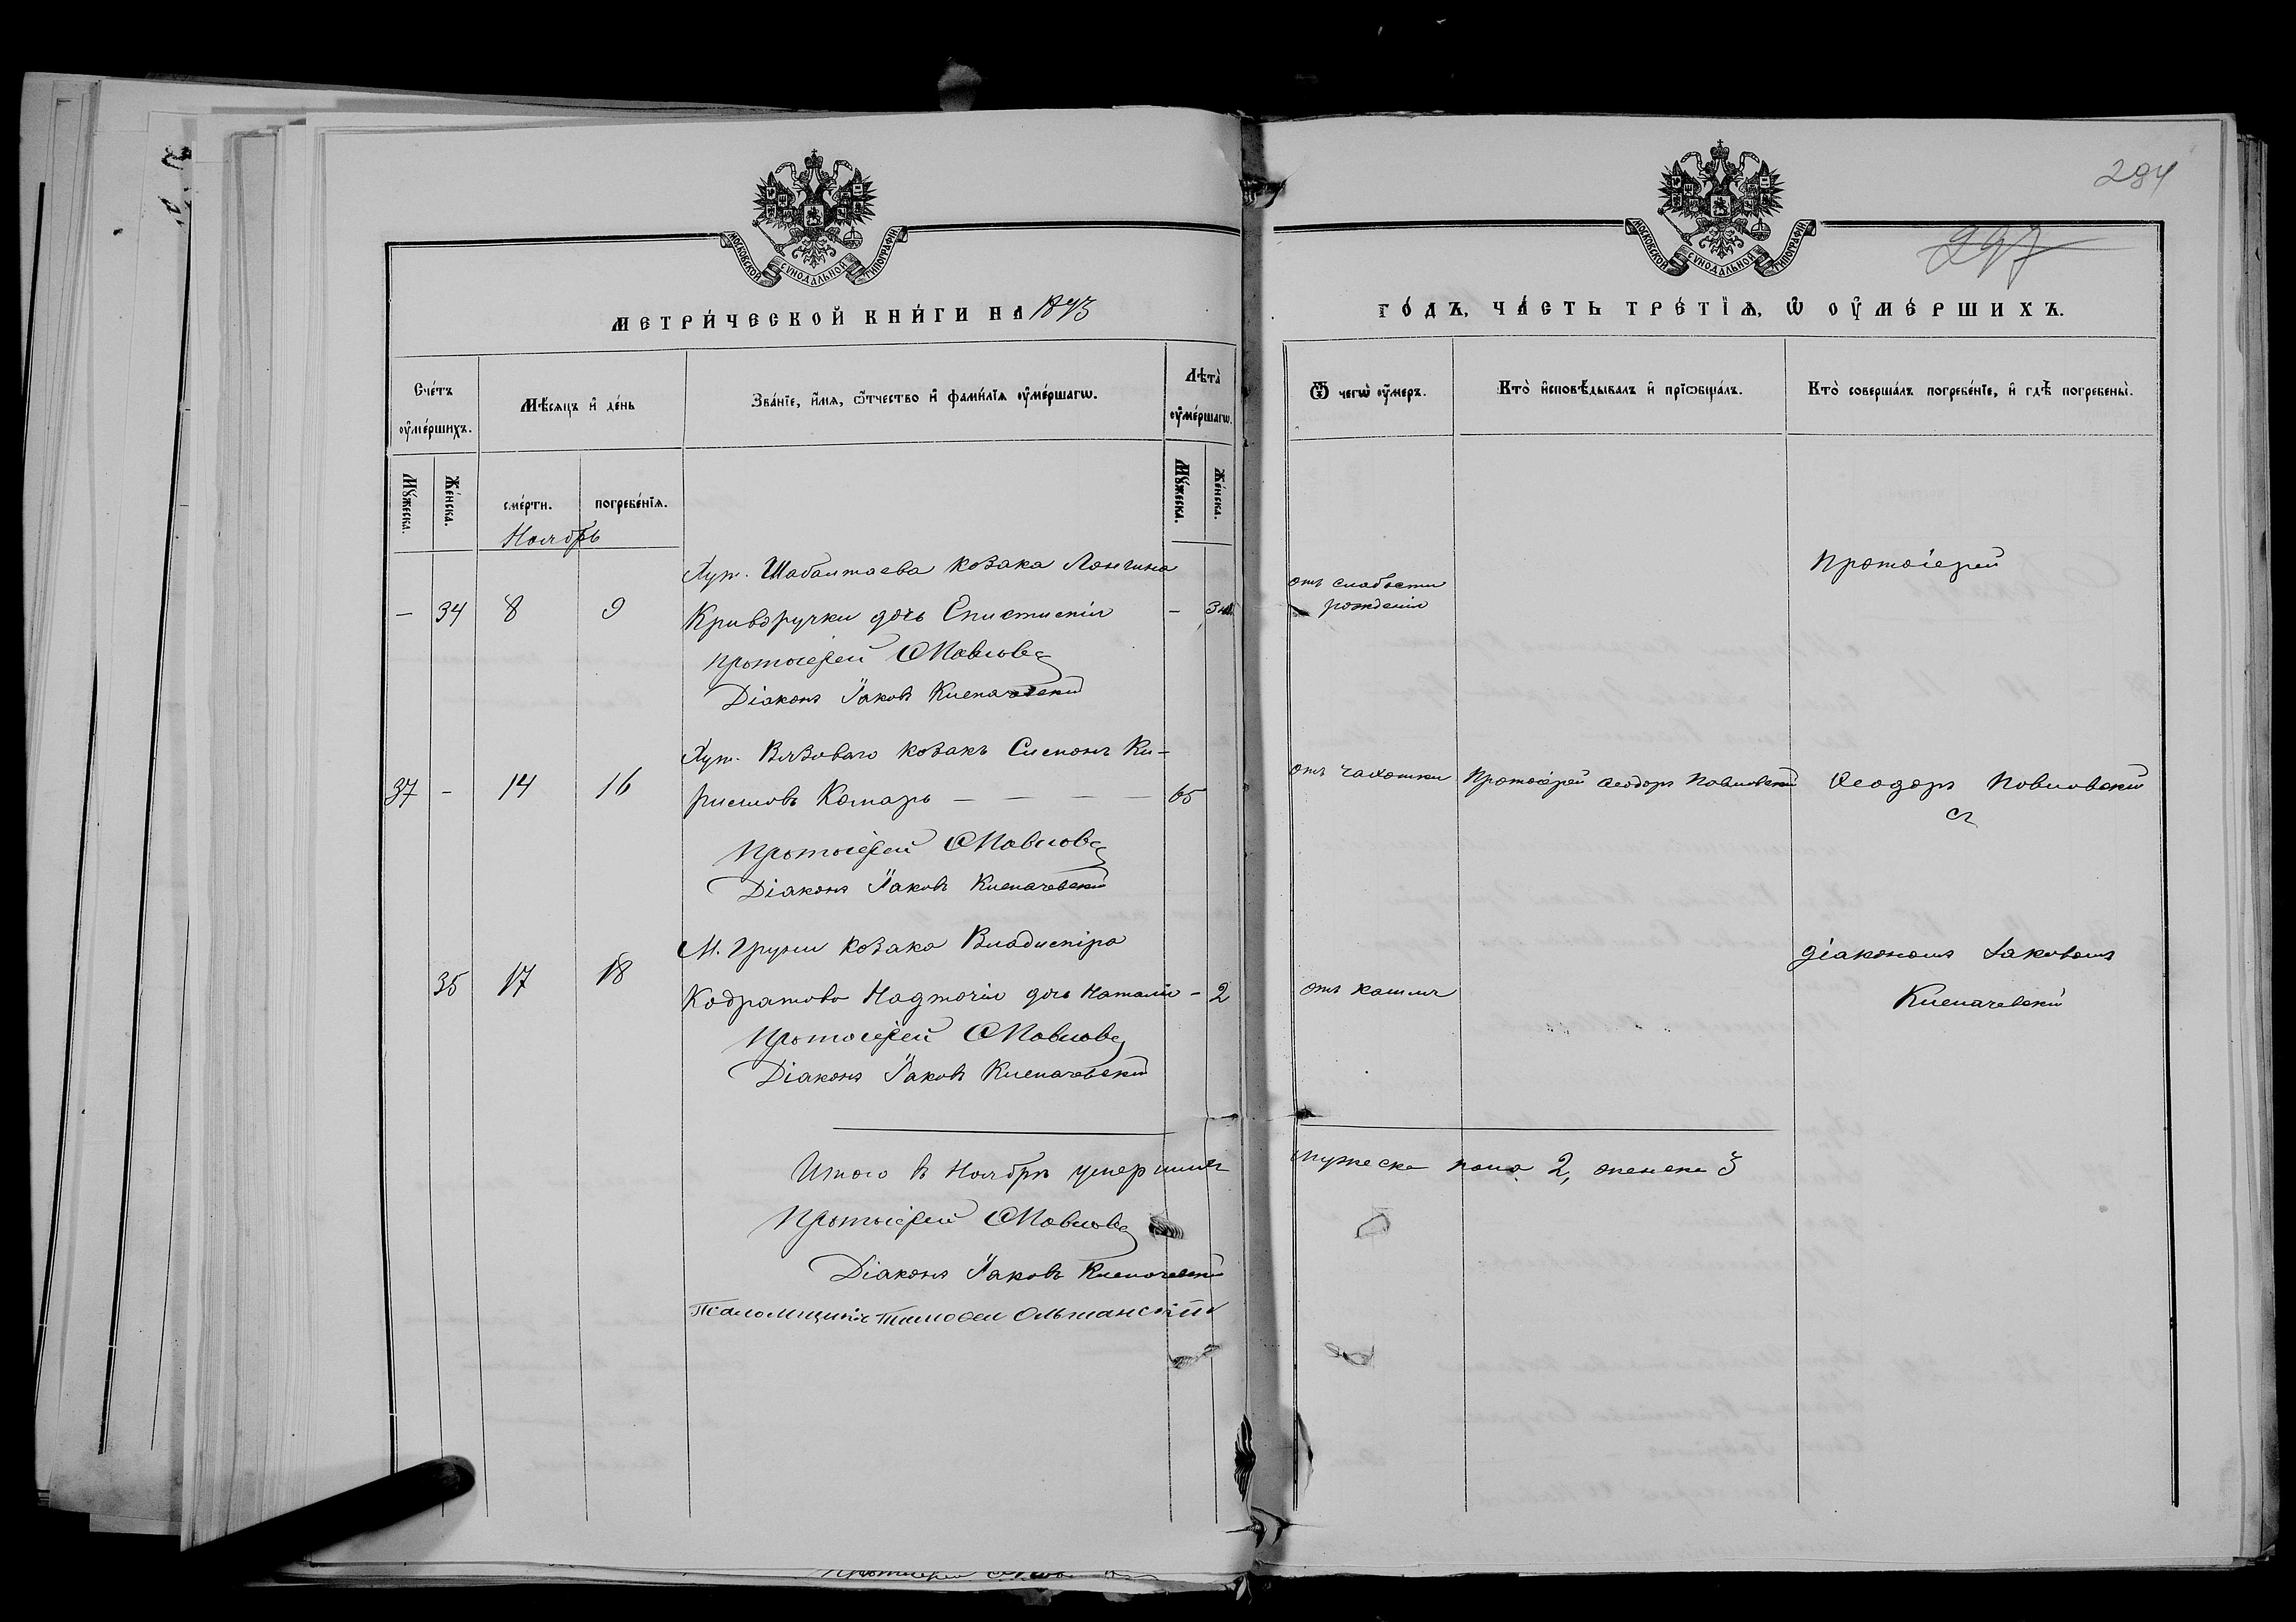 МОСКОВСКОЙ СУНОДАЛЬНОЙ ТИПОГРАФІИ
МЕТРИ́ЧЕСКОЙ КНИ́ГИ НА 1893
Сче́тъ ᲂу҆ме́ршихъ.
Мѣ́сяцъ и҆ де́нь
Зва́нїе, и҆́мя, ѻ҆́тчество и҆ фами́лїя ᲂу҆ме́ршагѡ.
Лѣта̀ ᲂу҆ме́ршагѡ.
Мꙋ́жеска.
Же́нска.
сме́рти.
погребе́нїя.
Мꙋ́жеска.
Же́нска.
Ноябрь
Хут. Шабалтаева козака Лонгина
— 34 8 9 Криворучки дочь Епистимія —
Протоіерей Ѳ Павловс
Діаконъ Іаковъ Клепачевскій
Хут. Вязоваго козакъ Симонъ Ки-
37 — 14 16 риловъ Комаръ — — — — 65
Протоіерей Ѳ Павловс
Діаконъ Іаковъ Клепачевскій
М. Груни козака Владиміра
35 17 18 Кодратова Надточія дочь Наталія — 2
Протоіерей Ѳ Павловс
Діаконъ Іаковъ Клепачевскій
Итого въ Ноябрѣ умершихъ
Протоіерей Ѳ Павловс
Діаконъ Іаковъ Клепачевскій
Псаломщикъ Тимоѳей Ольшанскій
294
297
МОСКОВСКОЙ СУНОДАЛЬНОЙ ТИПОГРАФІИ
ГО́ДЪ, ЧА́СТЬ ТРЕ́ТЇѦ, Ѡ҆ ОУ҆МЕ́РШИХЪ.
Ѿ чегѡ̀ ᲂу҆́меръ.
Кто̀ и҆сповѣ́дывалъ и҆ прїѡбща́лъ.
Кто̀ соверша́лъ погребе́нїе, и҆ гдѣ̀ погребены̀.
Протоіерей
отъ слабости
рожденія
отъ чахотки Протоіерей Ѳеодоръ Павловскій Ѳеодоръ Павловскій
съ
діакономъ Іаковомъ
отъ кашля Клепачевскій
мужеска пола 2, женска 3